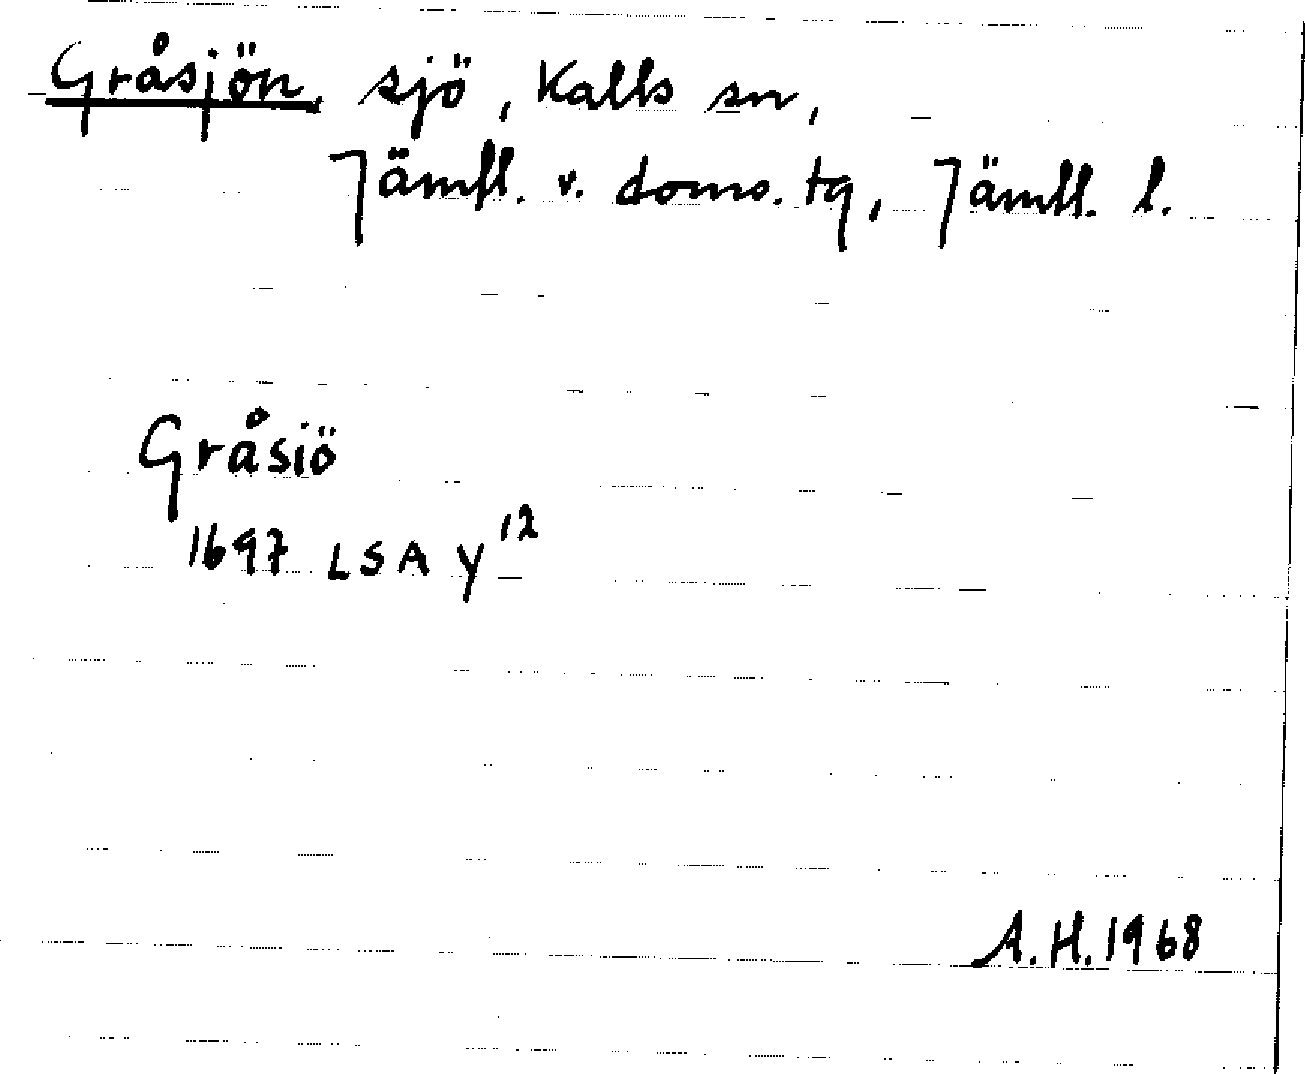 Gråsjön, sjö, Kalls sn,
Jämtl. v. doms. tg, Jämtl. l.
Gråsiö
1697 LSA Y12
A.H. 1968